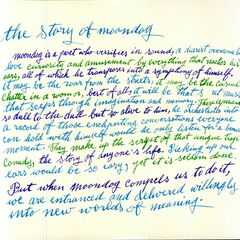 the story of moondog
moondog is a poet who versifies in sound, a diarist overcome by
love curiosity and amusement by everything that reaches his
ears, all of which he transposes into a symphony of himself.
it may be the roar from the streets, it may be the casual
chatter in a room or, best of all, it will be that music
that seeps through imagination and memory. They
so dull to the dull but to alive to him, he orchestrates into
a record of those enchanting conversations everyone
can hold with himself would he only listen for a
moment. They make up the script of that under-
comedy, the story of anyone's life. Picking up our
ears would be so easy; yet it is seldom done.
But when moondog compels us to do it,
we are enchanted and delivered willingly
into new worlds of meaning.